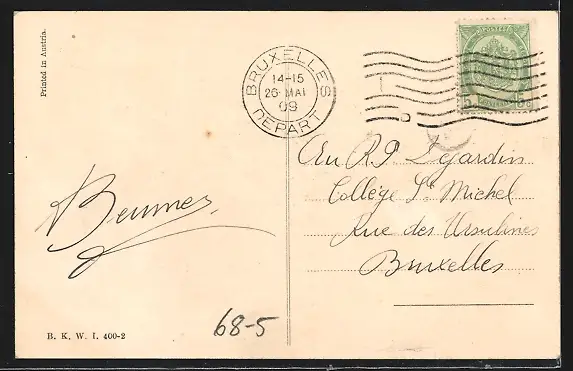 Printed in Austria.
BRUXELLES
14-15
26 MAI
09
DEPART
5c 5c
Au R.P. Dejardin
Collège St Michel
Rue des Ursulines
Bruxelles
68-5
B. K. W. I. 400-2